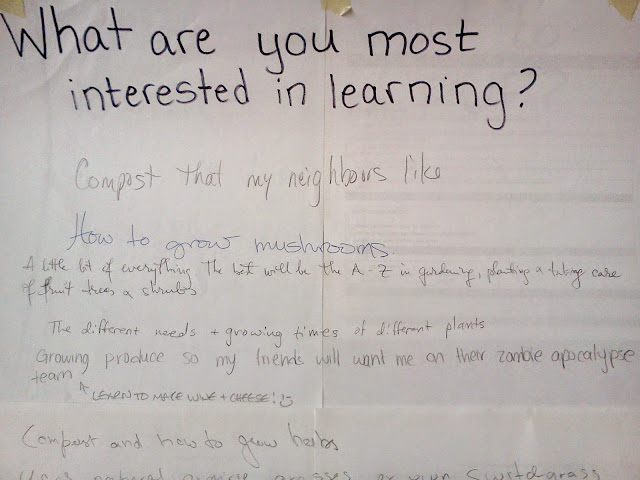 What are you most
interested in learning?
Compost that my neighbours like
How to grow mushrooms.
A little bit of everything. The bit will be the A-Z in gardening, planting & taking care
of fruit trees & shrubs
The different needs + growing times of different plants
Growing produce so my friends will want me on their zombie apocalypse
team
LEARN TO MAKE WINE + CHEESE!
Compost and how to grow herbs
natural grasses or even